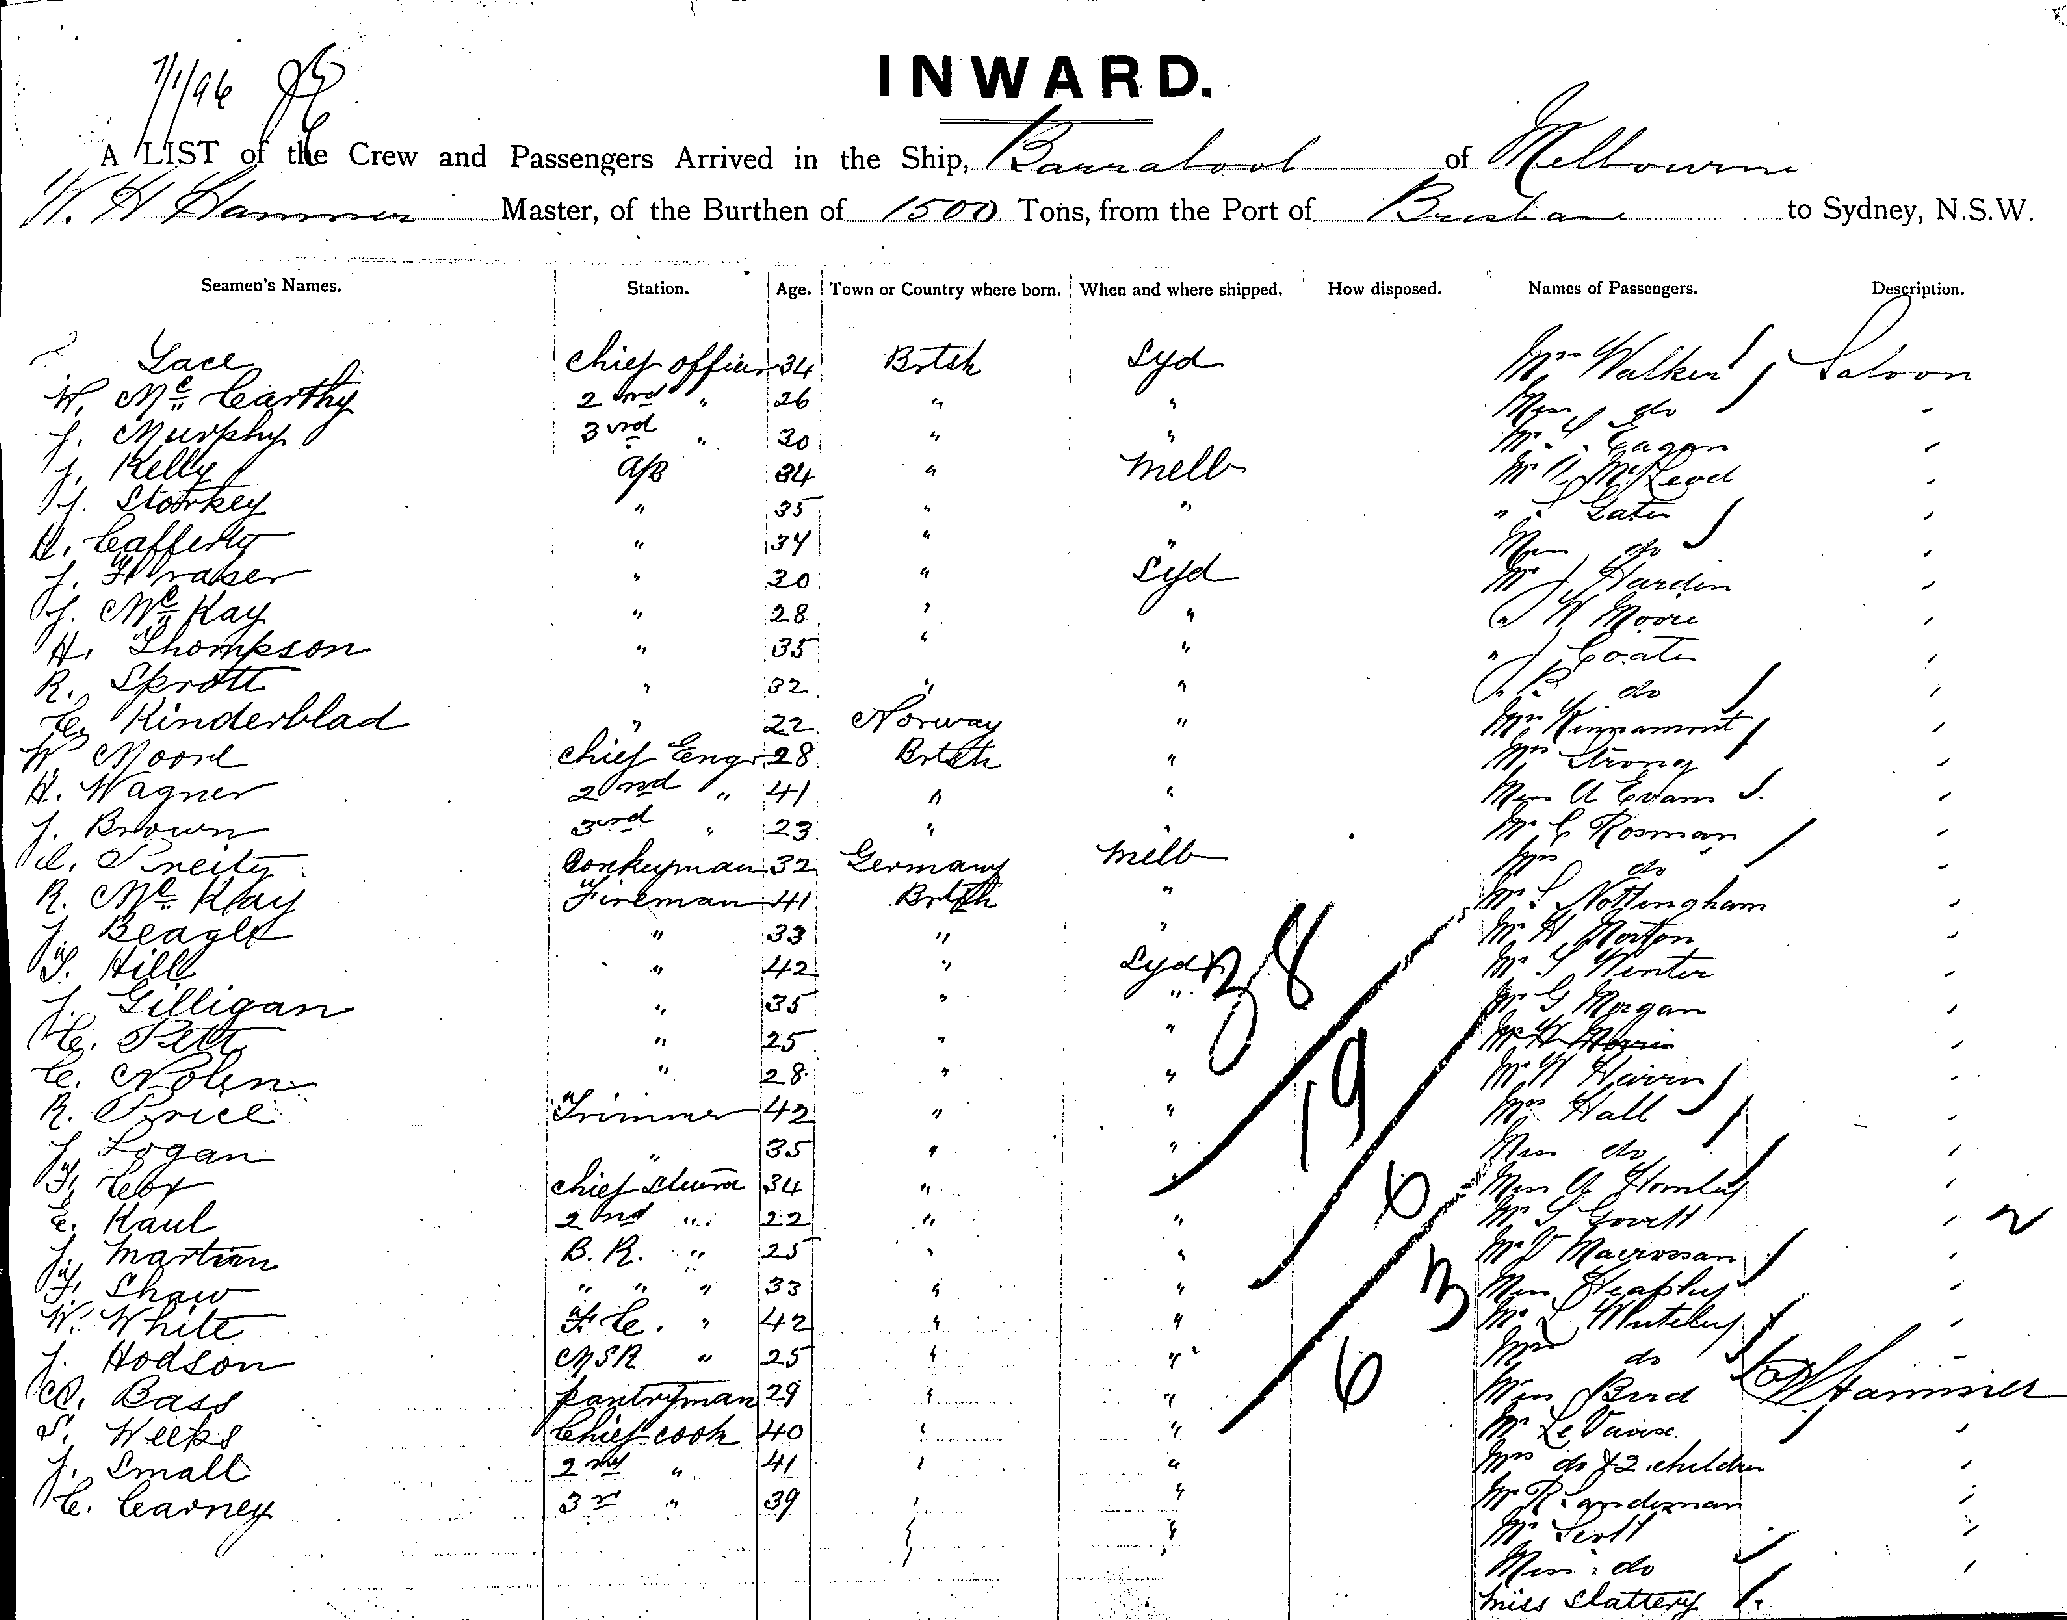 7/1/96
INWARD.
A LIST of the Crew and Passengers Arrived in the Ship, Barrabool of Melbourne
W. H Hammer Master, of the Burthen of 1500 Tons, from the Port of Brisbane to Sydney, N.S.W.
Seamen's Names. Station. Age. Town or Country where born. When and where shipped. How disposed. Names of Passengers. Description.
Lace Chief officer 34 Brtsh Syd Mr Walker Saloon
W. McCarthy 2nd " 26 " " do "
J. Murphy 3rd " 30 " " Mr Eagan "
J. Kelly A/B 34 " Melb Mr McLeod "
J. Storkey " 35 " " " Gates "
Cafferty " 34 " " do "
J. Fraser " 30 " Syd Mr J Hardin "
J. McKay " 28 " " W Moore "
H. Thompson " 35 " " " J Coates "
R. Sprott " 32 " " do "
Kinderblad " 22 Norway " "
W Moore Chief Engr 28 Brtsh " Strong "
H. Wagner 2nd " 41 " " A Evans "
J. Brown 3rd " 23 " " Mr C Rosman "
Donkeyman 32 Germany Melb do "
R. McKay Fireman 41 Brtsh " Mr S Nottingham "
J. Beagle " 33 " " Mr H Morton "
T. Hill " 42 " Syd Mr S Winter "
J. Gilligan " 35 " " Mr G Morgan "
C. Pett " 25 " " Mr H Morris "
C. Nolen " 28 " " Mr W "
R. Price Trimmer 42 " " Hall "
J. Logan " 35 " " do "
F. Cox Chief Stewrd 34 " "
E. Kaul 2nd " 22 " " Mr S Govett " 2
J. Martin B. R. " 25 " " Mr Macrossan "
F. Shaw " " " 33 " " "
W. White F. C. " 42 " " "
J. Hodson MSR " 25 " " do "
Bass pantryman 29 " " Bird Hammer
S. Weeks Chief cook 40 " " Mr Le Vavise "
J. Small 2nd " 41 " " Mrs do & 2 children "
C. Carney 3rd " 39 " " Mr R Sandeman "
Mr Scott "
do "
Miss Slattery
38
19
6
3
6